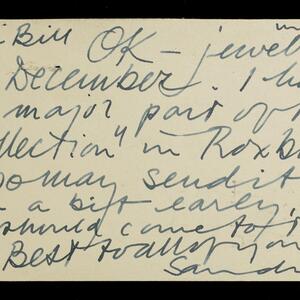 Bill OK - jewel
December. I ha
major part of
llection" in Roxb
may send it
a bit early,
should come to
Best to all of you
Sand